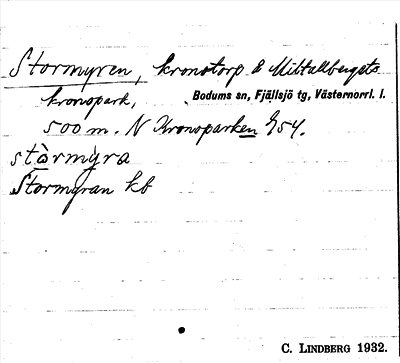 Stormyren, kronotorp å Mittallbergets
kronopark, Bodums sn, Fjällsjö tg, Västernorrl. l.
500 m. N Kronoparken 9/54.
stòrmỳra
Stormyran kb
C. LINDBERG 1932.